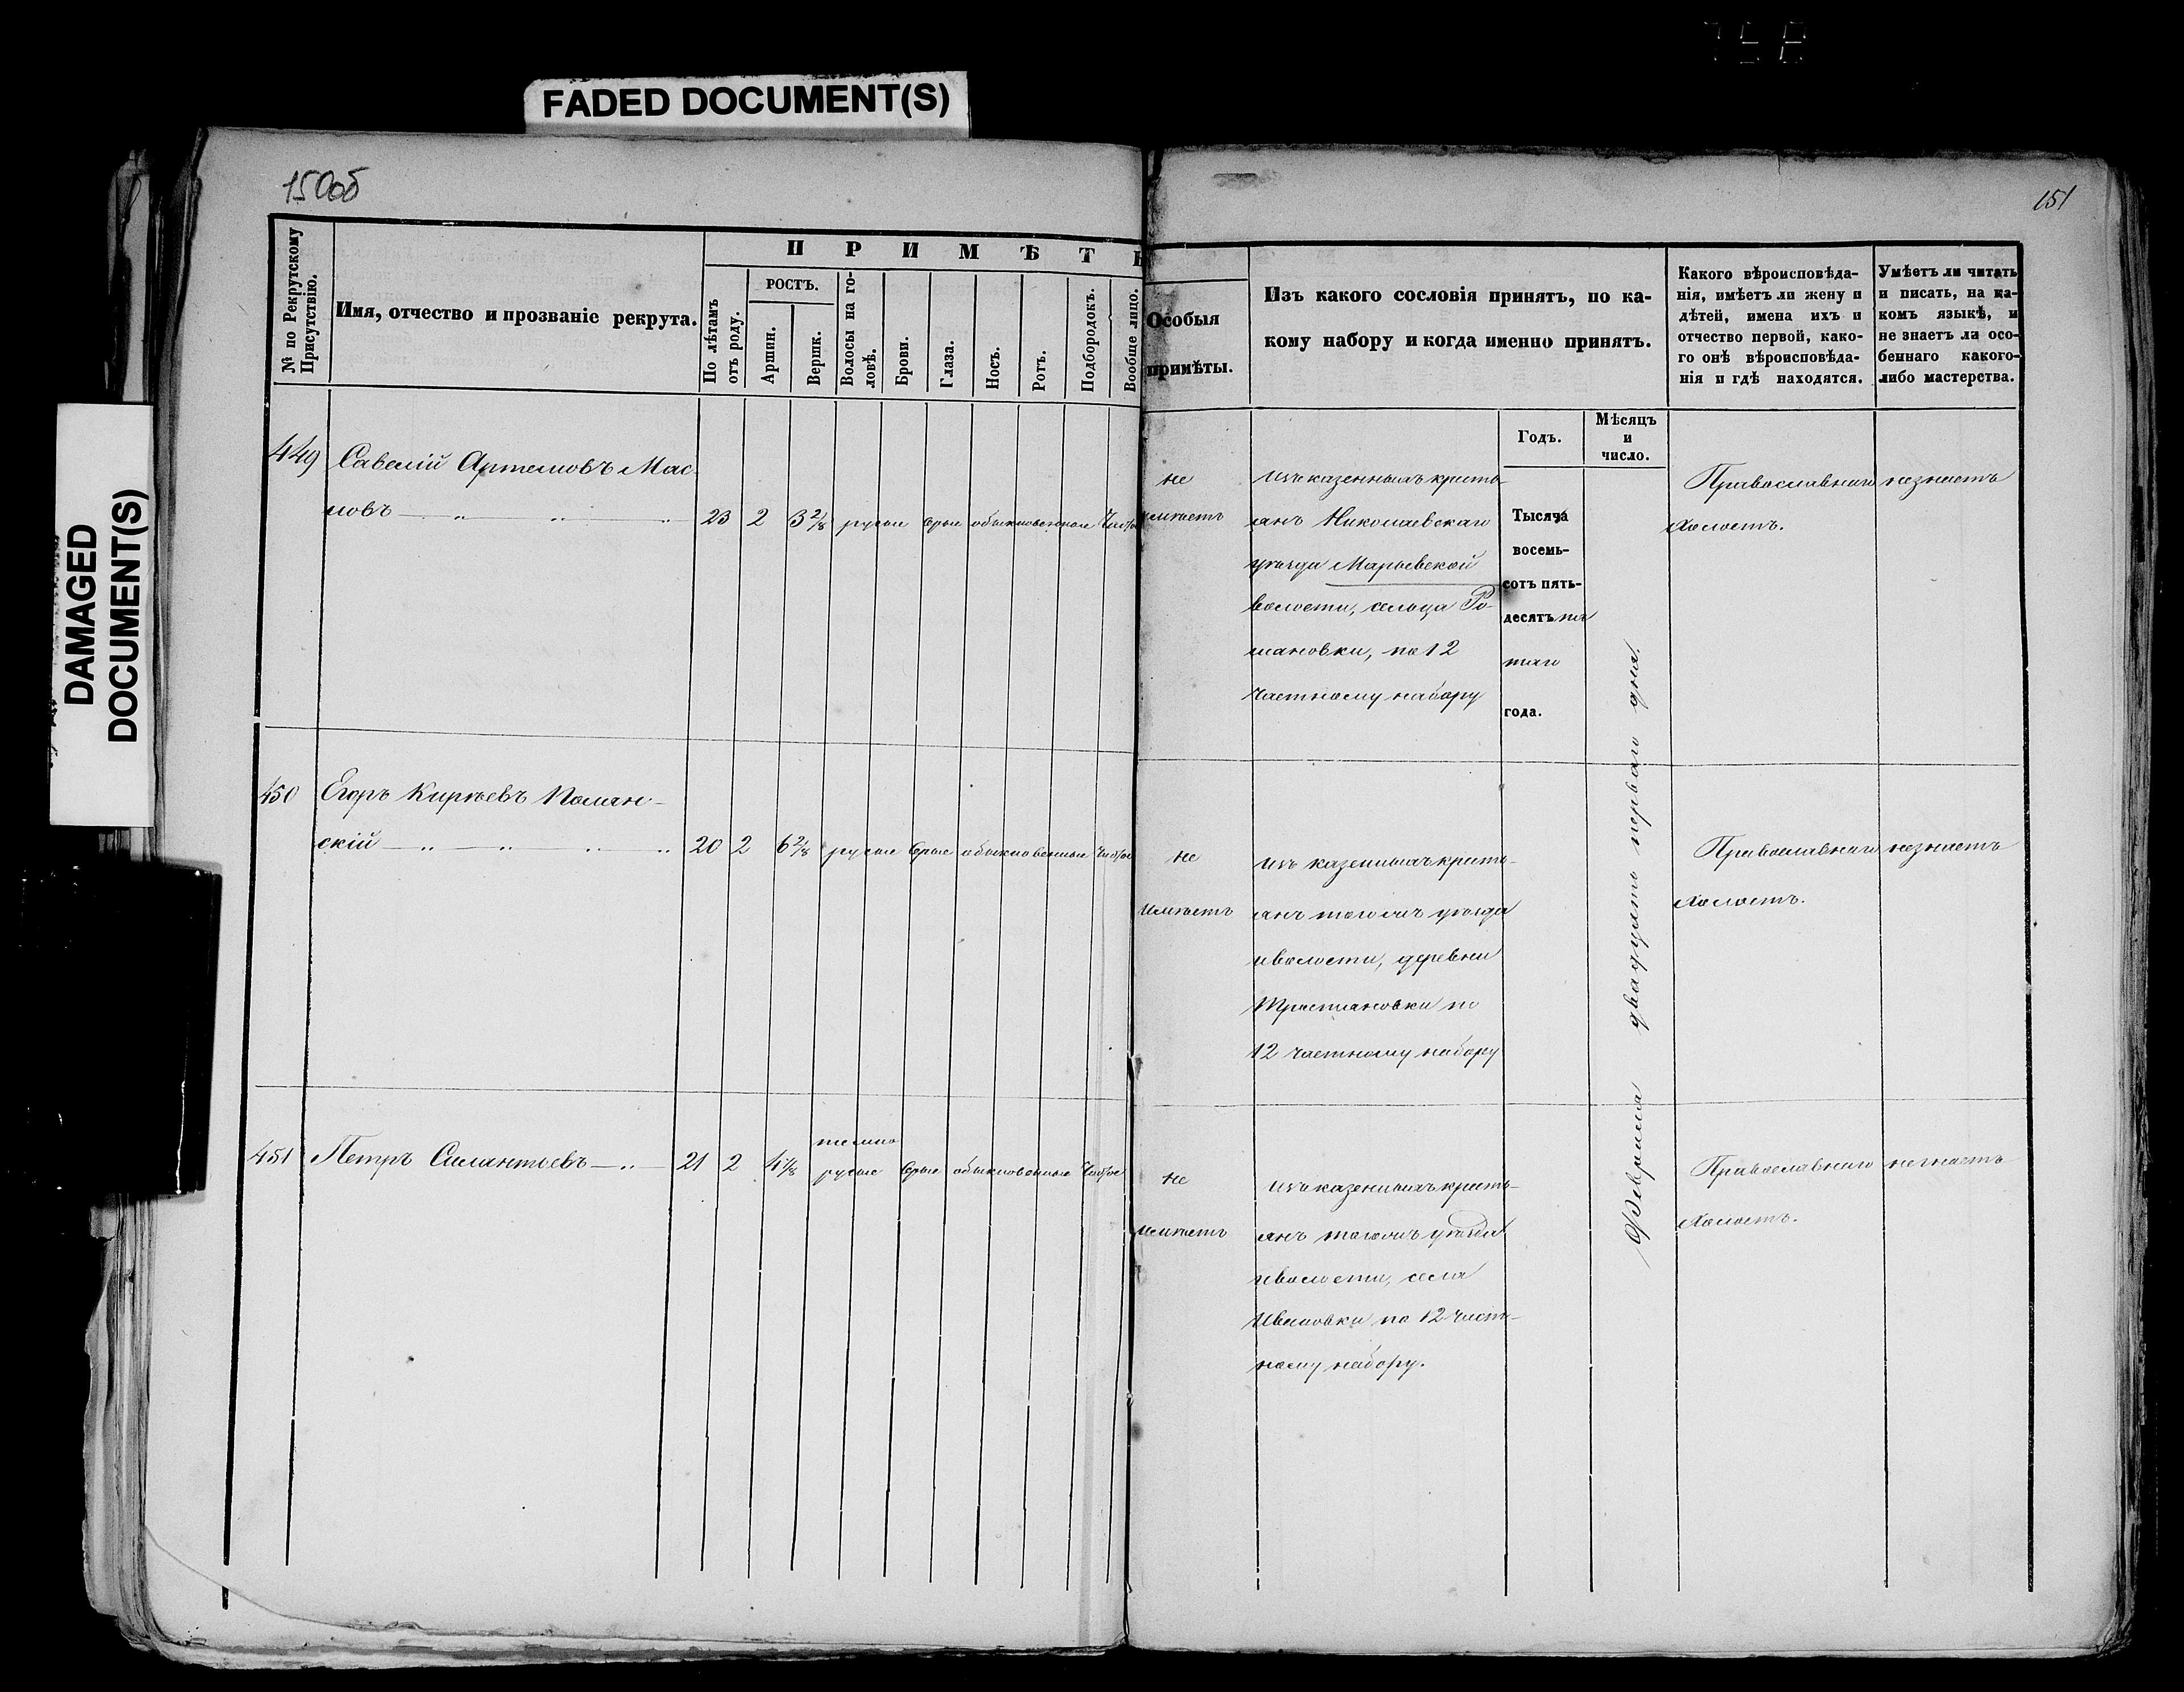 FADED DOCUMENT(S)
DAMAGED
DOCUMENT(S)
150об
151
№ по Рекрутскому
Присутствію.
Имя, отчество и прозваніе рекрута.
ПРИМѢТЫ
По лѣтамъ
отъ роду.
РОСТЪ.
Аршин.
Вершк.
Волосы на го-
ловѣ.
Брови.
Глаза.
Носъ.
Ротъ.
Подбородокъ.
Вообще лицо.
Особыя
примѣты.
Изъ какого сословія принятъ, по ка-
кому набору и когда именно принятъ.
Годъ.
Мѣсяцъ
и
число.
Какого вѣроисповѣда-
нія, имѣетъ ли жену и
дѣтей, имена ихъ и
отчество первой, како-
го онѣ вѣроисповѣда-
нія и гдѣ находятся.
Умѣетъ ли читать
и писать, на ка-
комъ языкѣ, и
не знаетъ ли осо-
беннаго какого-
либо мастерства.
449 Савелій Артемовъ Мас-
ловъ 23 2 3 2/8 русые сѣрые обыкновенное Чистое
не
имѣетъ
изъ казенныхъ кресть-
янъ Николаевскаго
уѣзда Марьевской
волости, сельца Ро-
мановки, по 12
частному набору
Тысяча
восемь-
сотъ пять-
десятъ пя
таго
года.
Февраля двадцать перваго дня.
Православнаго
Холостъ.
незнаетъ
450 Егоръ Кирѣевъ Полян-
скій 20 2 6 2/8 русые сѣрые обыкновенные Чистое
не
имѣетъ
изъ казенныхъ кресть-
янъ тогожъ уѣзда
и волости, деревни
Тростяновки по
12 частному набору
Православнаго
Холостъ.
незнаетъ
451 Петръ Силантьевъ 21 2 4 1/8 темно
русые сѣрые обыкновенные Чистое
не
имѣетъ
изъ казенныхъ кресть-
янъ тогожъ уѣзда
и волости, села
Ивановки по 12 част-
ному набору.
Православнаго
Холостъ.
незнаетъ